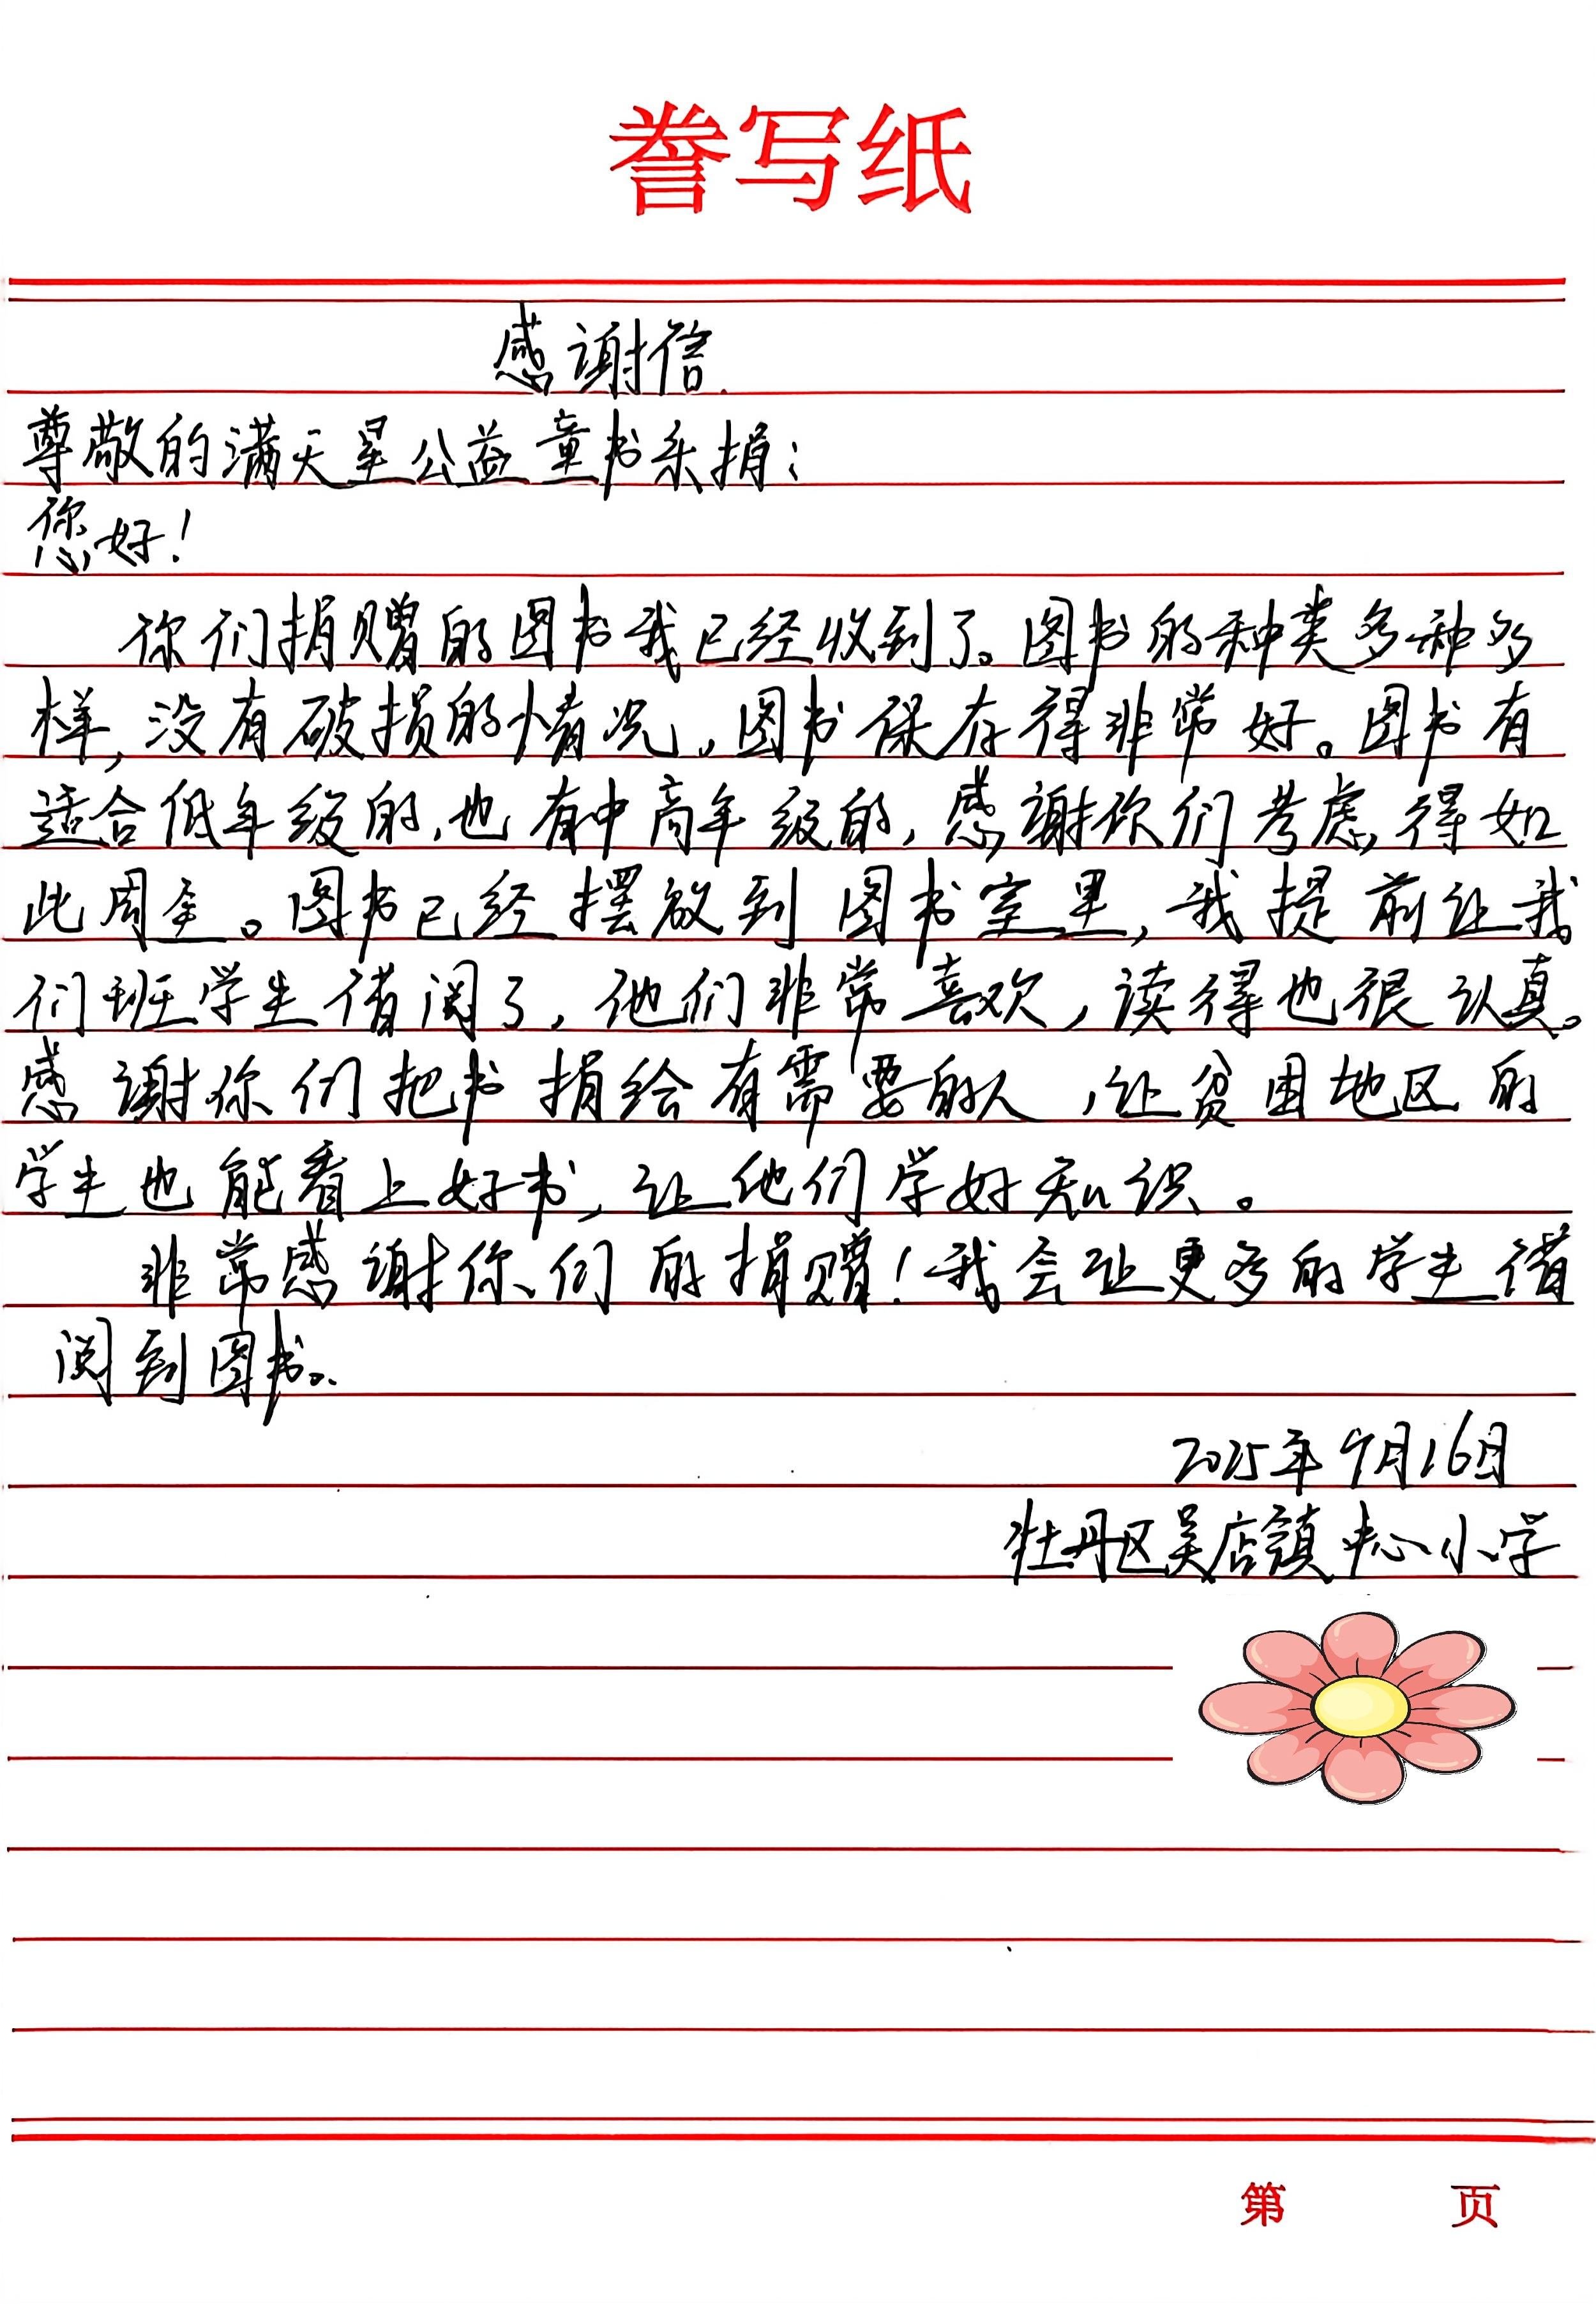 誊写纸
感谢信
尊敬的满天星公益童书乐捐：
您好！
你们捐赠的图书我已经收到了。图书的种类多种多
样，没有破损的情况，图书保存得非常好。图书有
适合低年级的，也有中高年级的，感谢你们考虑得如
此周全。图书已经摆放到图书室里，我提前让我
们班学生借阅了，他们非常喜欢，读得也很认真。
感谢你们把书捐给有需要的人，让贫困地区的
学生也能看上好书，让他们学好知识。
非常感谢你们的捐赠！我会让更多的学生借
阅到图书。
2025年9月16日
牡丹区吴店镇中心小学
第 页